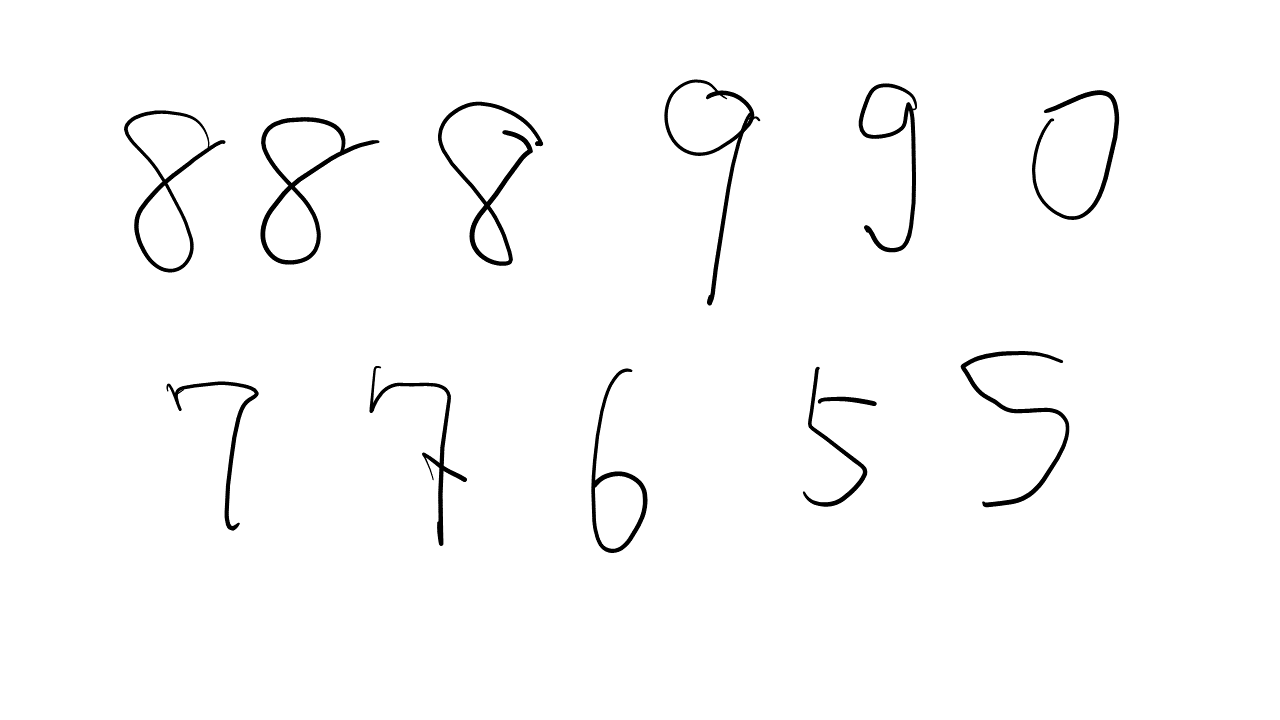 8 8 8 9 9 0
7 7 6 5 5